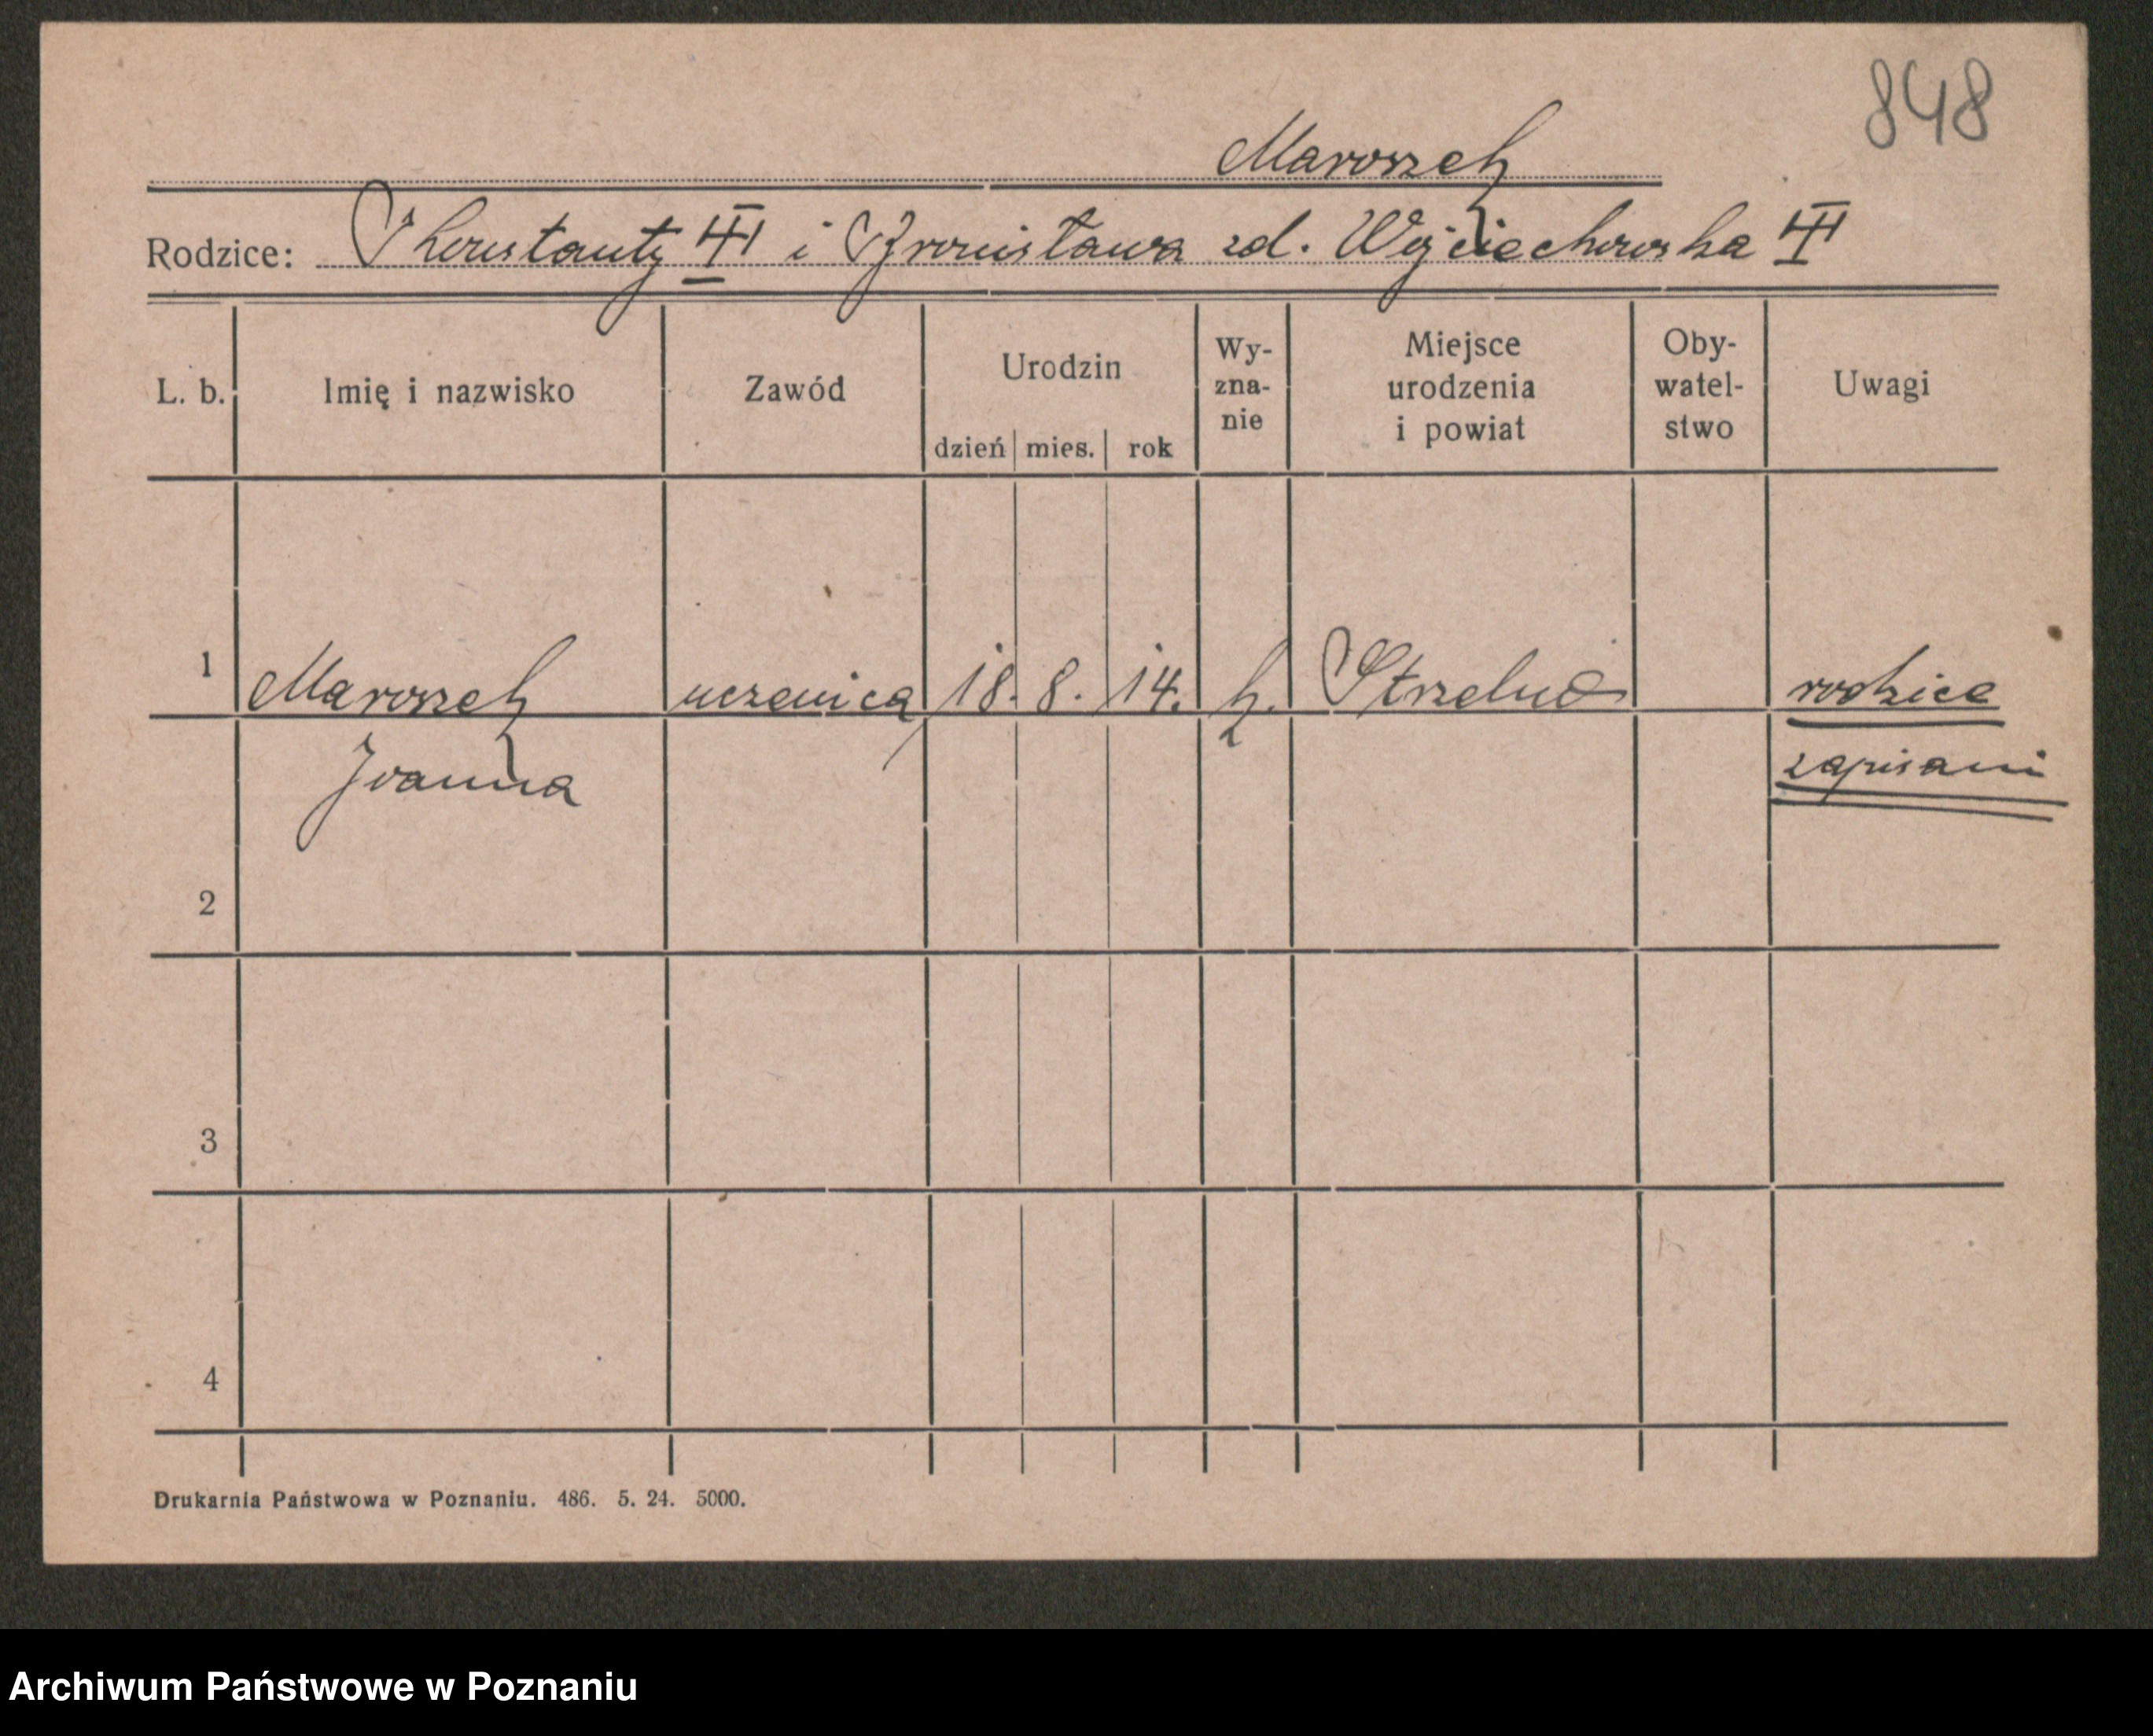 848
Maroszek
Rodzice: Konstanty III i Bronisława zd. Wojciechowska III
L. b. Imię i nazwisko Zawód Urodzin dzień mies. rok Wy-zna-nie Miejsce urodzenia i powiat Oby-watel-stwo Uwagi
1 Maroszek uczenica 18. 8. 14. k. Strzelno rodzice
Joanna zapisani
2
3
4
Drukarnia Państwowa w Poznaniu. 486. 5. 24. 5000.
Archiwum Państwowe w Poznaniu